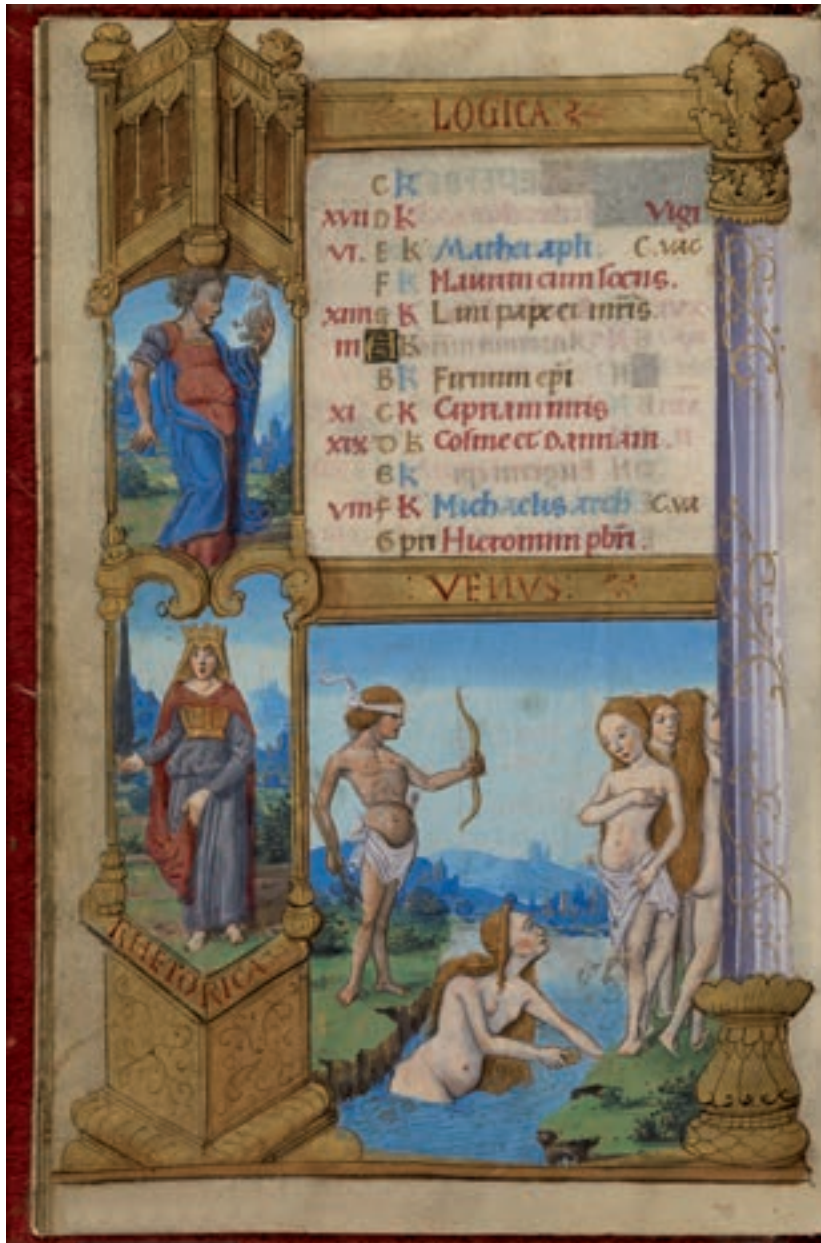 LOGICA
C K
XVII D K Vigi
VI. E K Mathei apli. C. vac
F K Mauricii cum sociis.
XIIII G K Lini pape et mris.
III A K
B K Firmini epi
XI C K Cipriani mris
XIX D K Cosme et Damiani.
E K
VIII F K Michaelis arch C. va
G pri Hieronimi pbri.
VENVS
RHETORICA